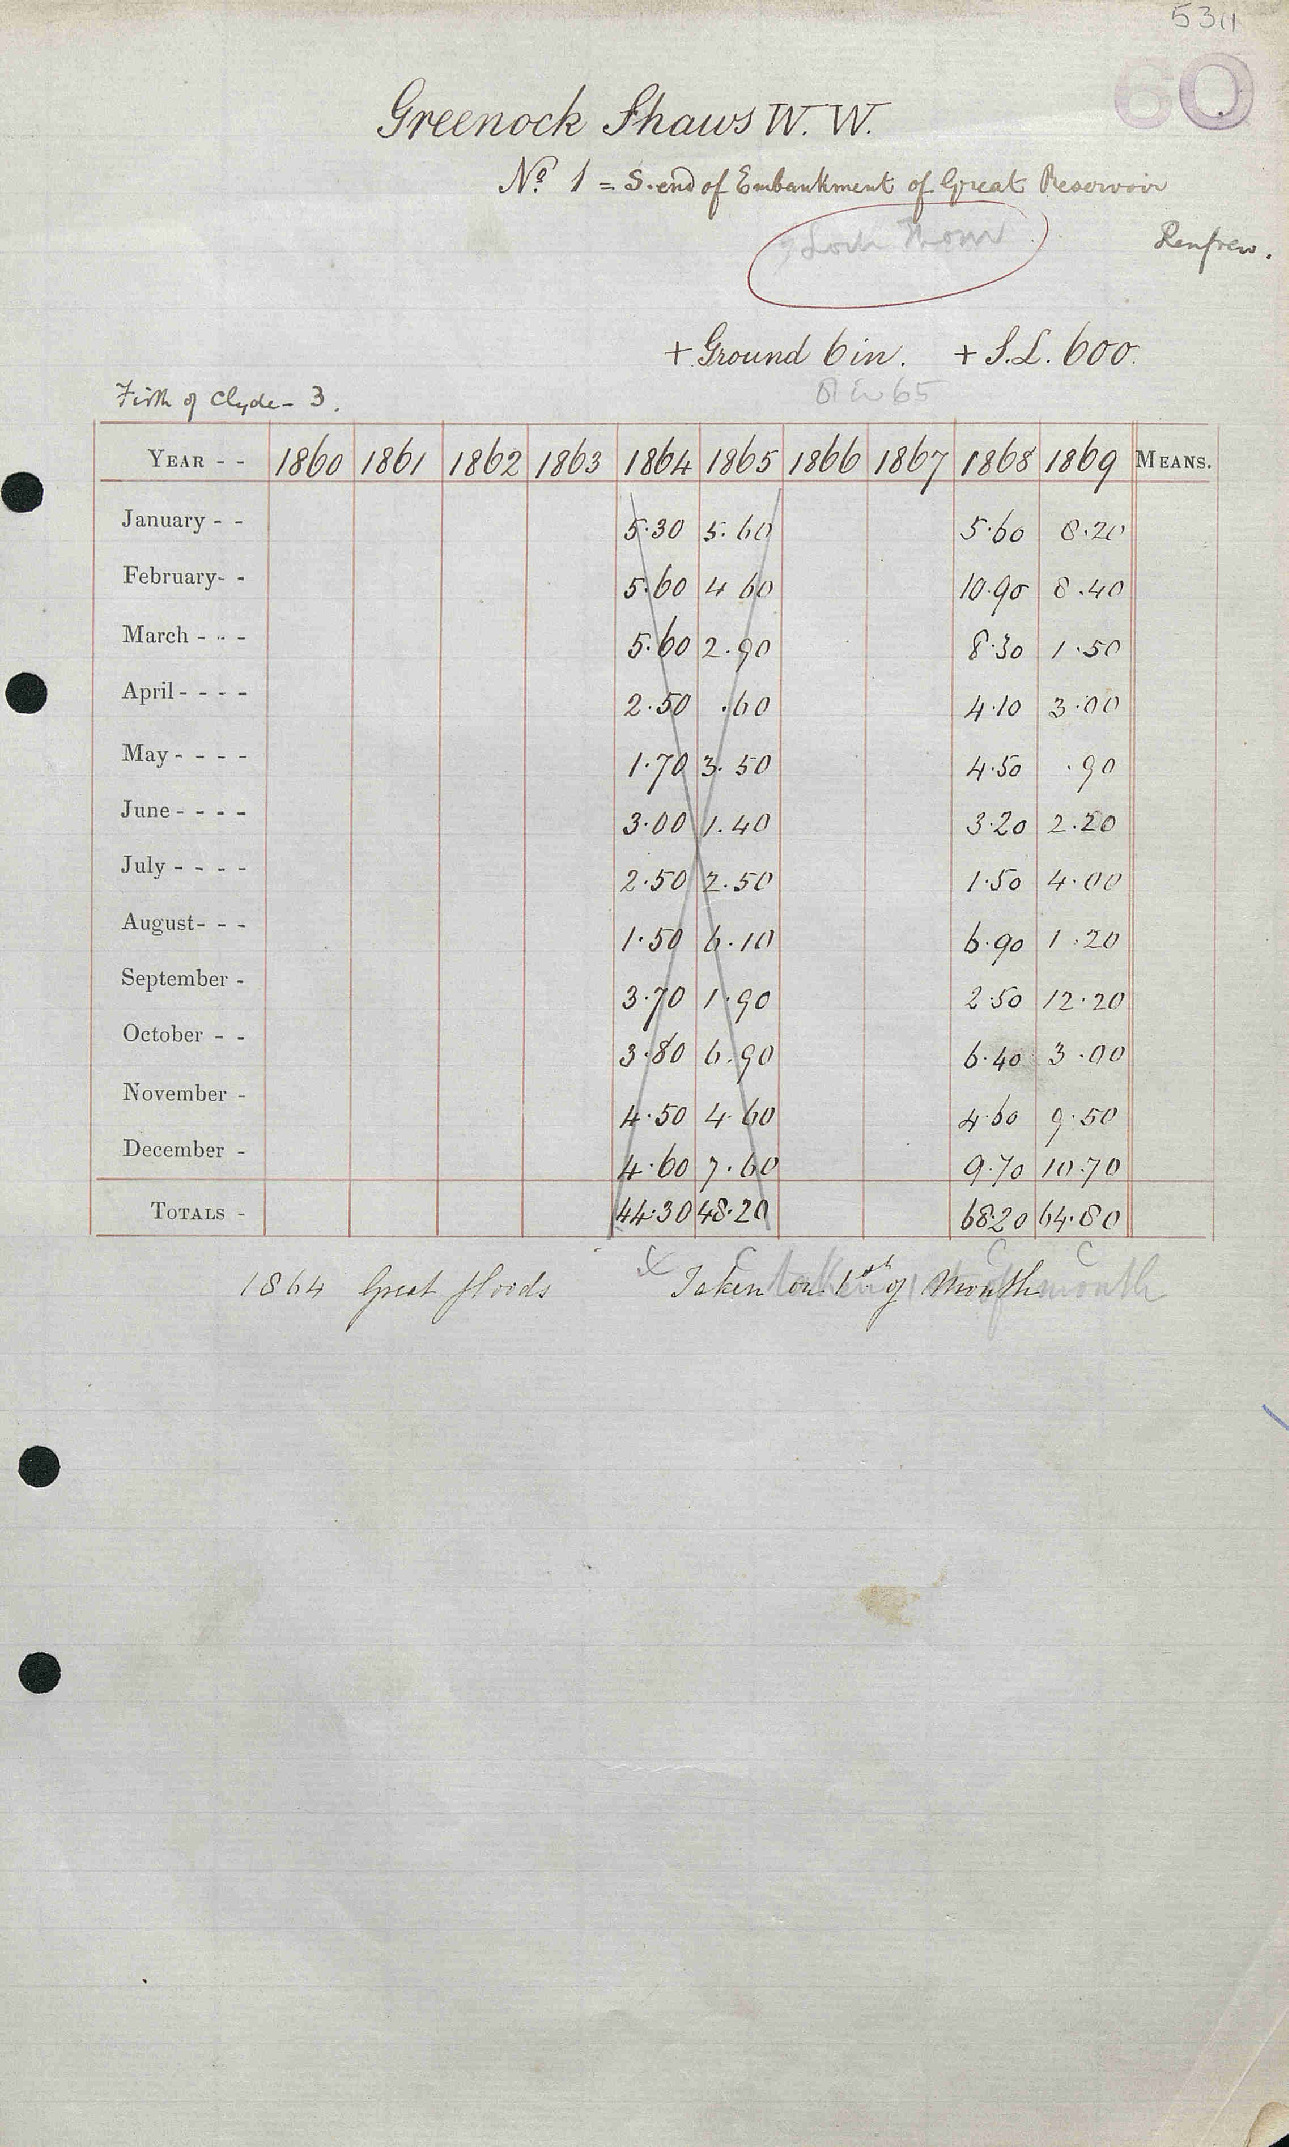 5311
60
Greenock Shaws W. W.
No. 1 = S. end of Embankment of Great Reservoir
? Loch Thom
Renfrew.
+ Ground 6 in. + S.L. 600.
65
Firth of Clyde - 3.
YEAR - - 1860 1861 1862 1863 1864 1865 1866 1867 1868 1869 MEANS.
January - - 5.30 5.60 5.60 8.20
February- - 5.60 4.60 10.90 8.40
March - - - 5.60 2.90 8.30 1.50
April - - - - 2.50 .60 4.10 3.00
May - - - - 1.70 3.50 4.50 .90
June - - - - 3.00 1.40 3.20 2.20
July - - - - 2.50 2.50 1.50 4.00
August- - - 1.50 6.10 6.90 1.20
September - 3.70 1.90 2.50 12.20
October - - 3.80 6.90 6.40 3.00
November - 4.50 4.60 4.60 9.50
December - 4.60 7.60 9.70 10.70
TOTALS - 44.30 48.20 68.20 64.80
x C C C
1864 Great floods Taken on 1st of Month
taken 1st of month